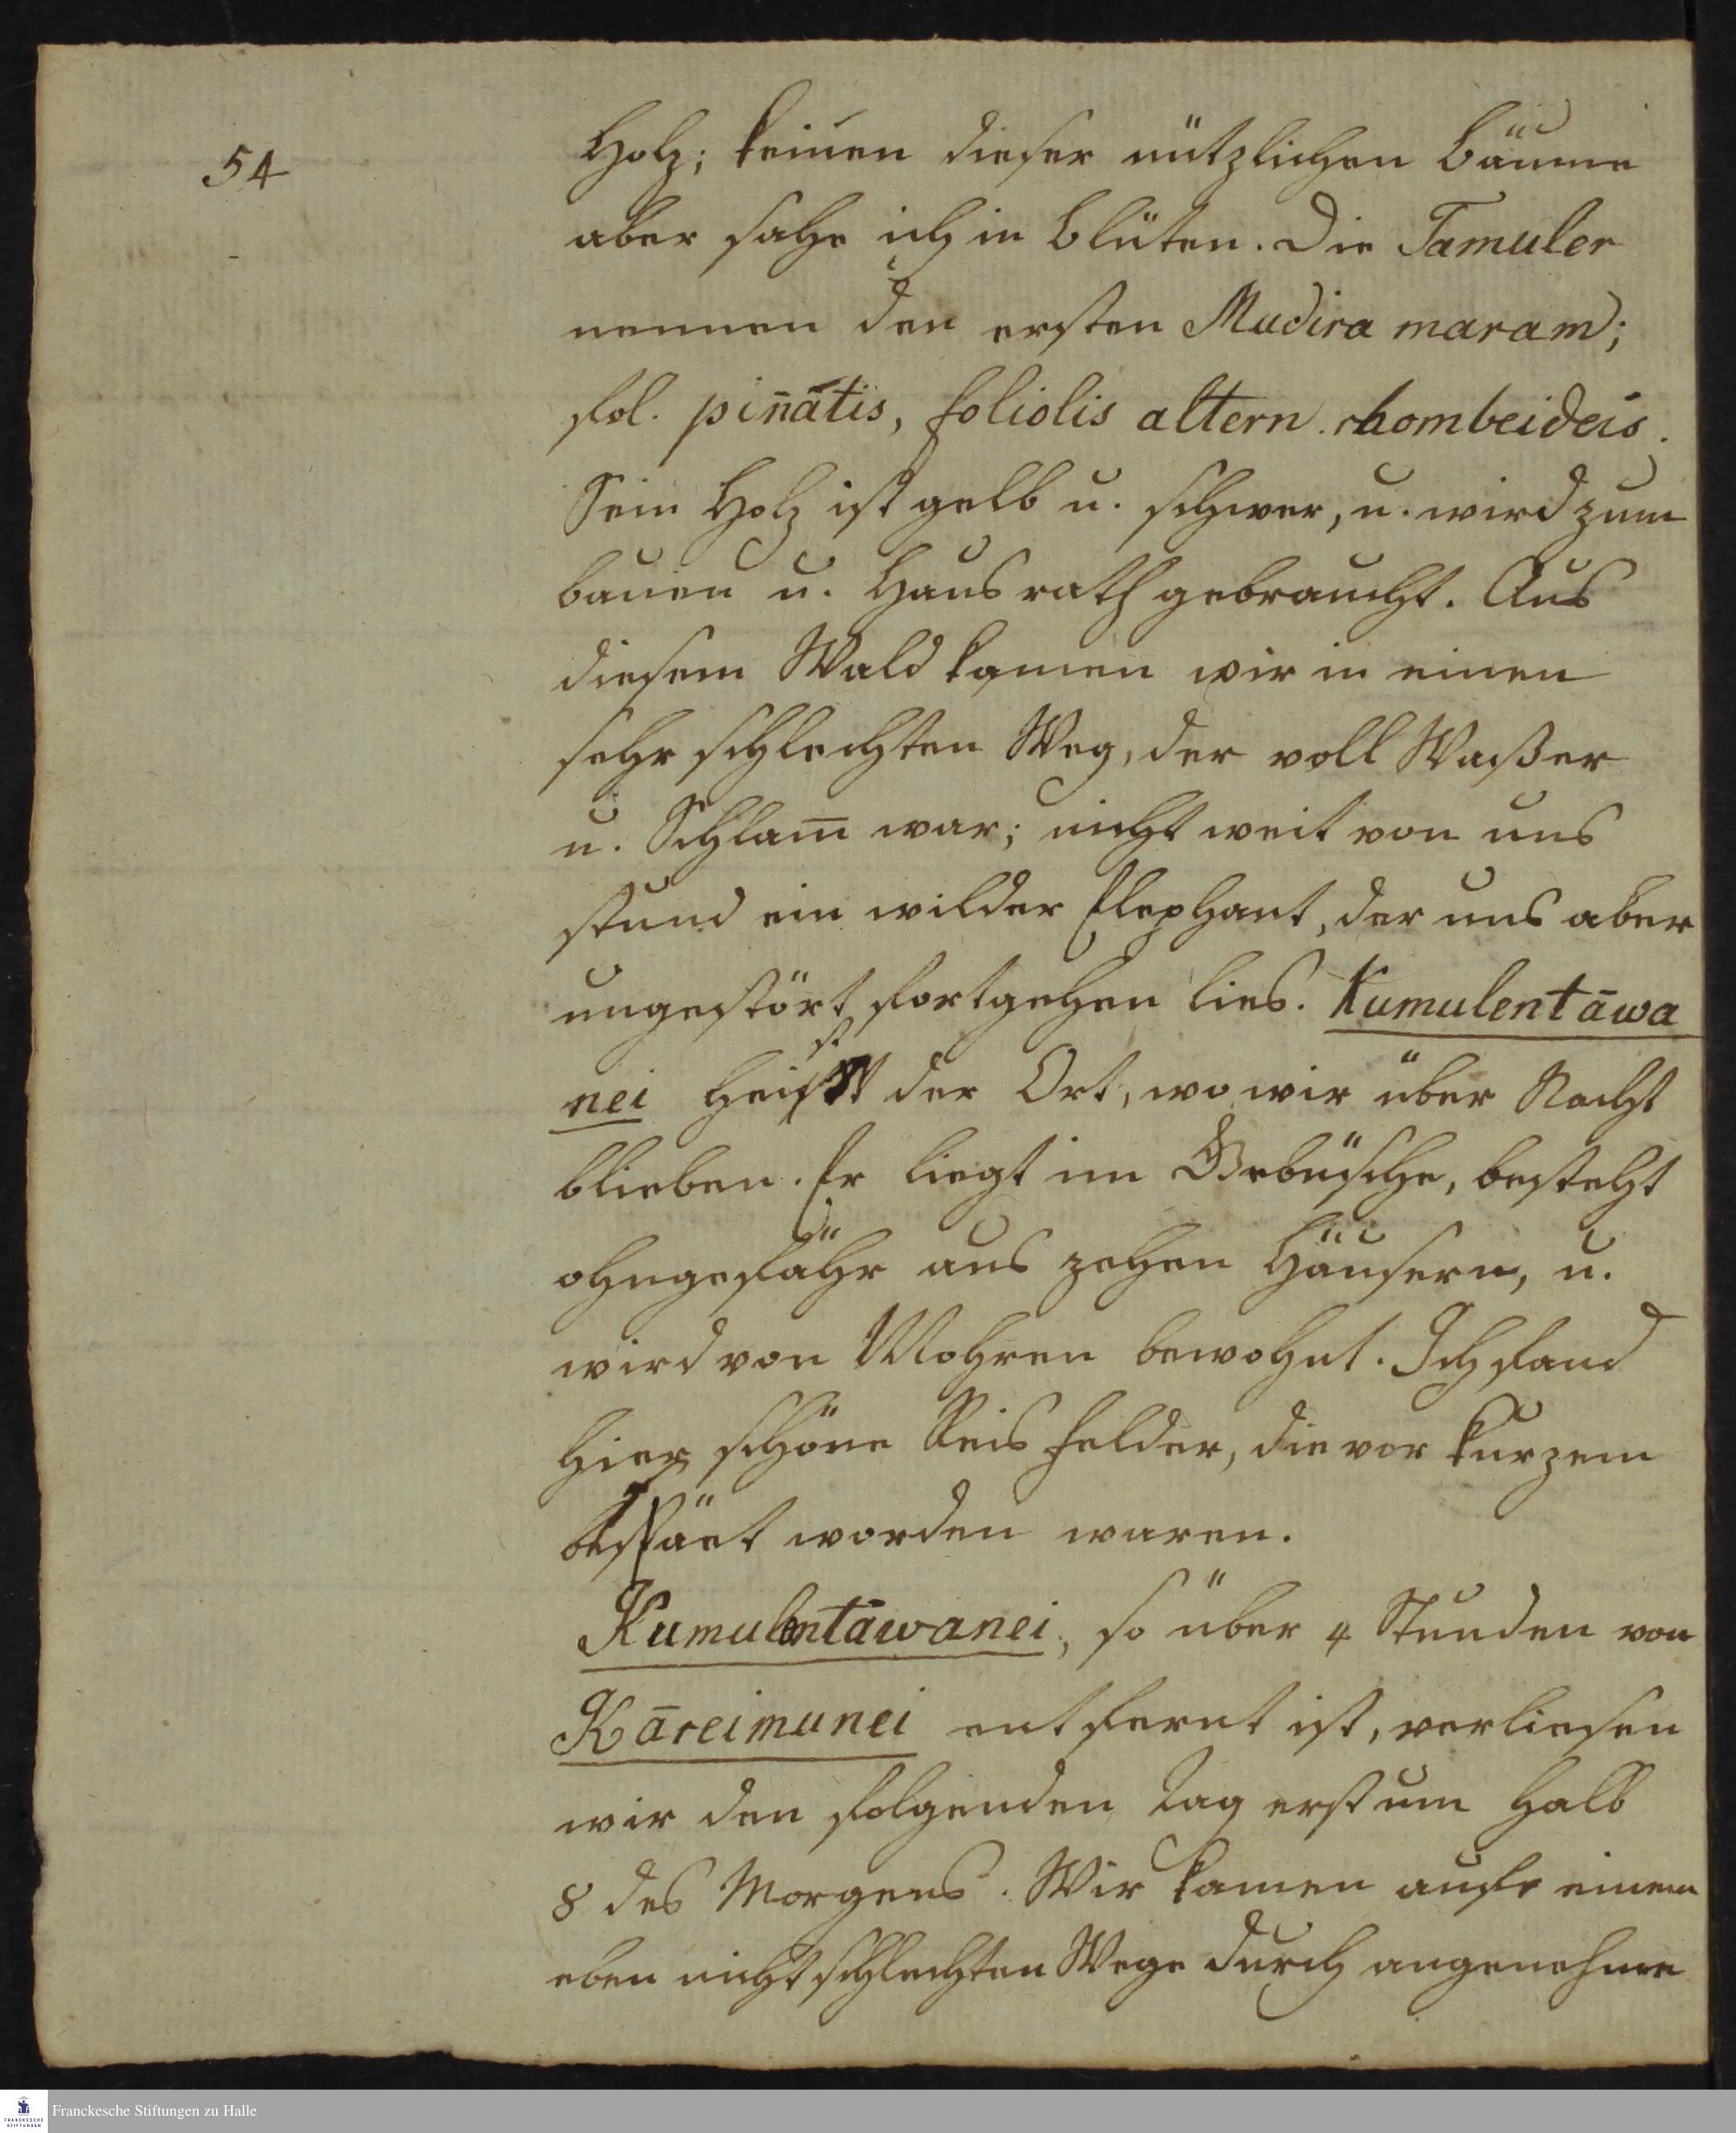 54
Holz; keinen dieser nützlichen Bäume
aber sahe ich in Blüten. Die Tamuler
nennen den ersten Mudira maram;
fol. pin̄atis, foliolis altern. rhombeideis.
Sein Holz ist gelb u. schwer, u. wird zum
bauen u. Hausrath gebraucht. Aus
diesem Wald kamen wir in einen
sehr schlechten Weg, der voll Waßer
u. Schlam̄ war; nicht weit von uns
stund ein wilder Elephant, der uns aber
ungestört fortgehen lies. Kumulentāwa
nei heist der Ort, wo wir über Nacht
blieben. Er liegt im Gebüsche, besteht
ohngefähr aus zehen Häusern, u.
wird von Mohren bewohnt. Ich fand
hier schöne Reis Felder, die vor kurzem
besäet worden waren.
Kumulentāwanei, so über 4 Stunden von
Kāreimunei entfernt ist, verliesen
wir den folgenden Tag erst um halb
8 des Morgens. Wir kamen auf einem
eben nicht schlechten Wege durch angenehme
Franckesche Stiftungen zu Halle
FRANCKESCHE
STIFTUNGEN